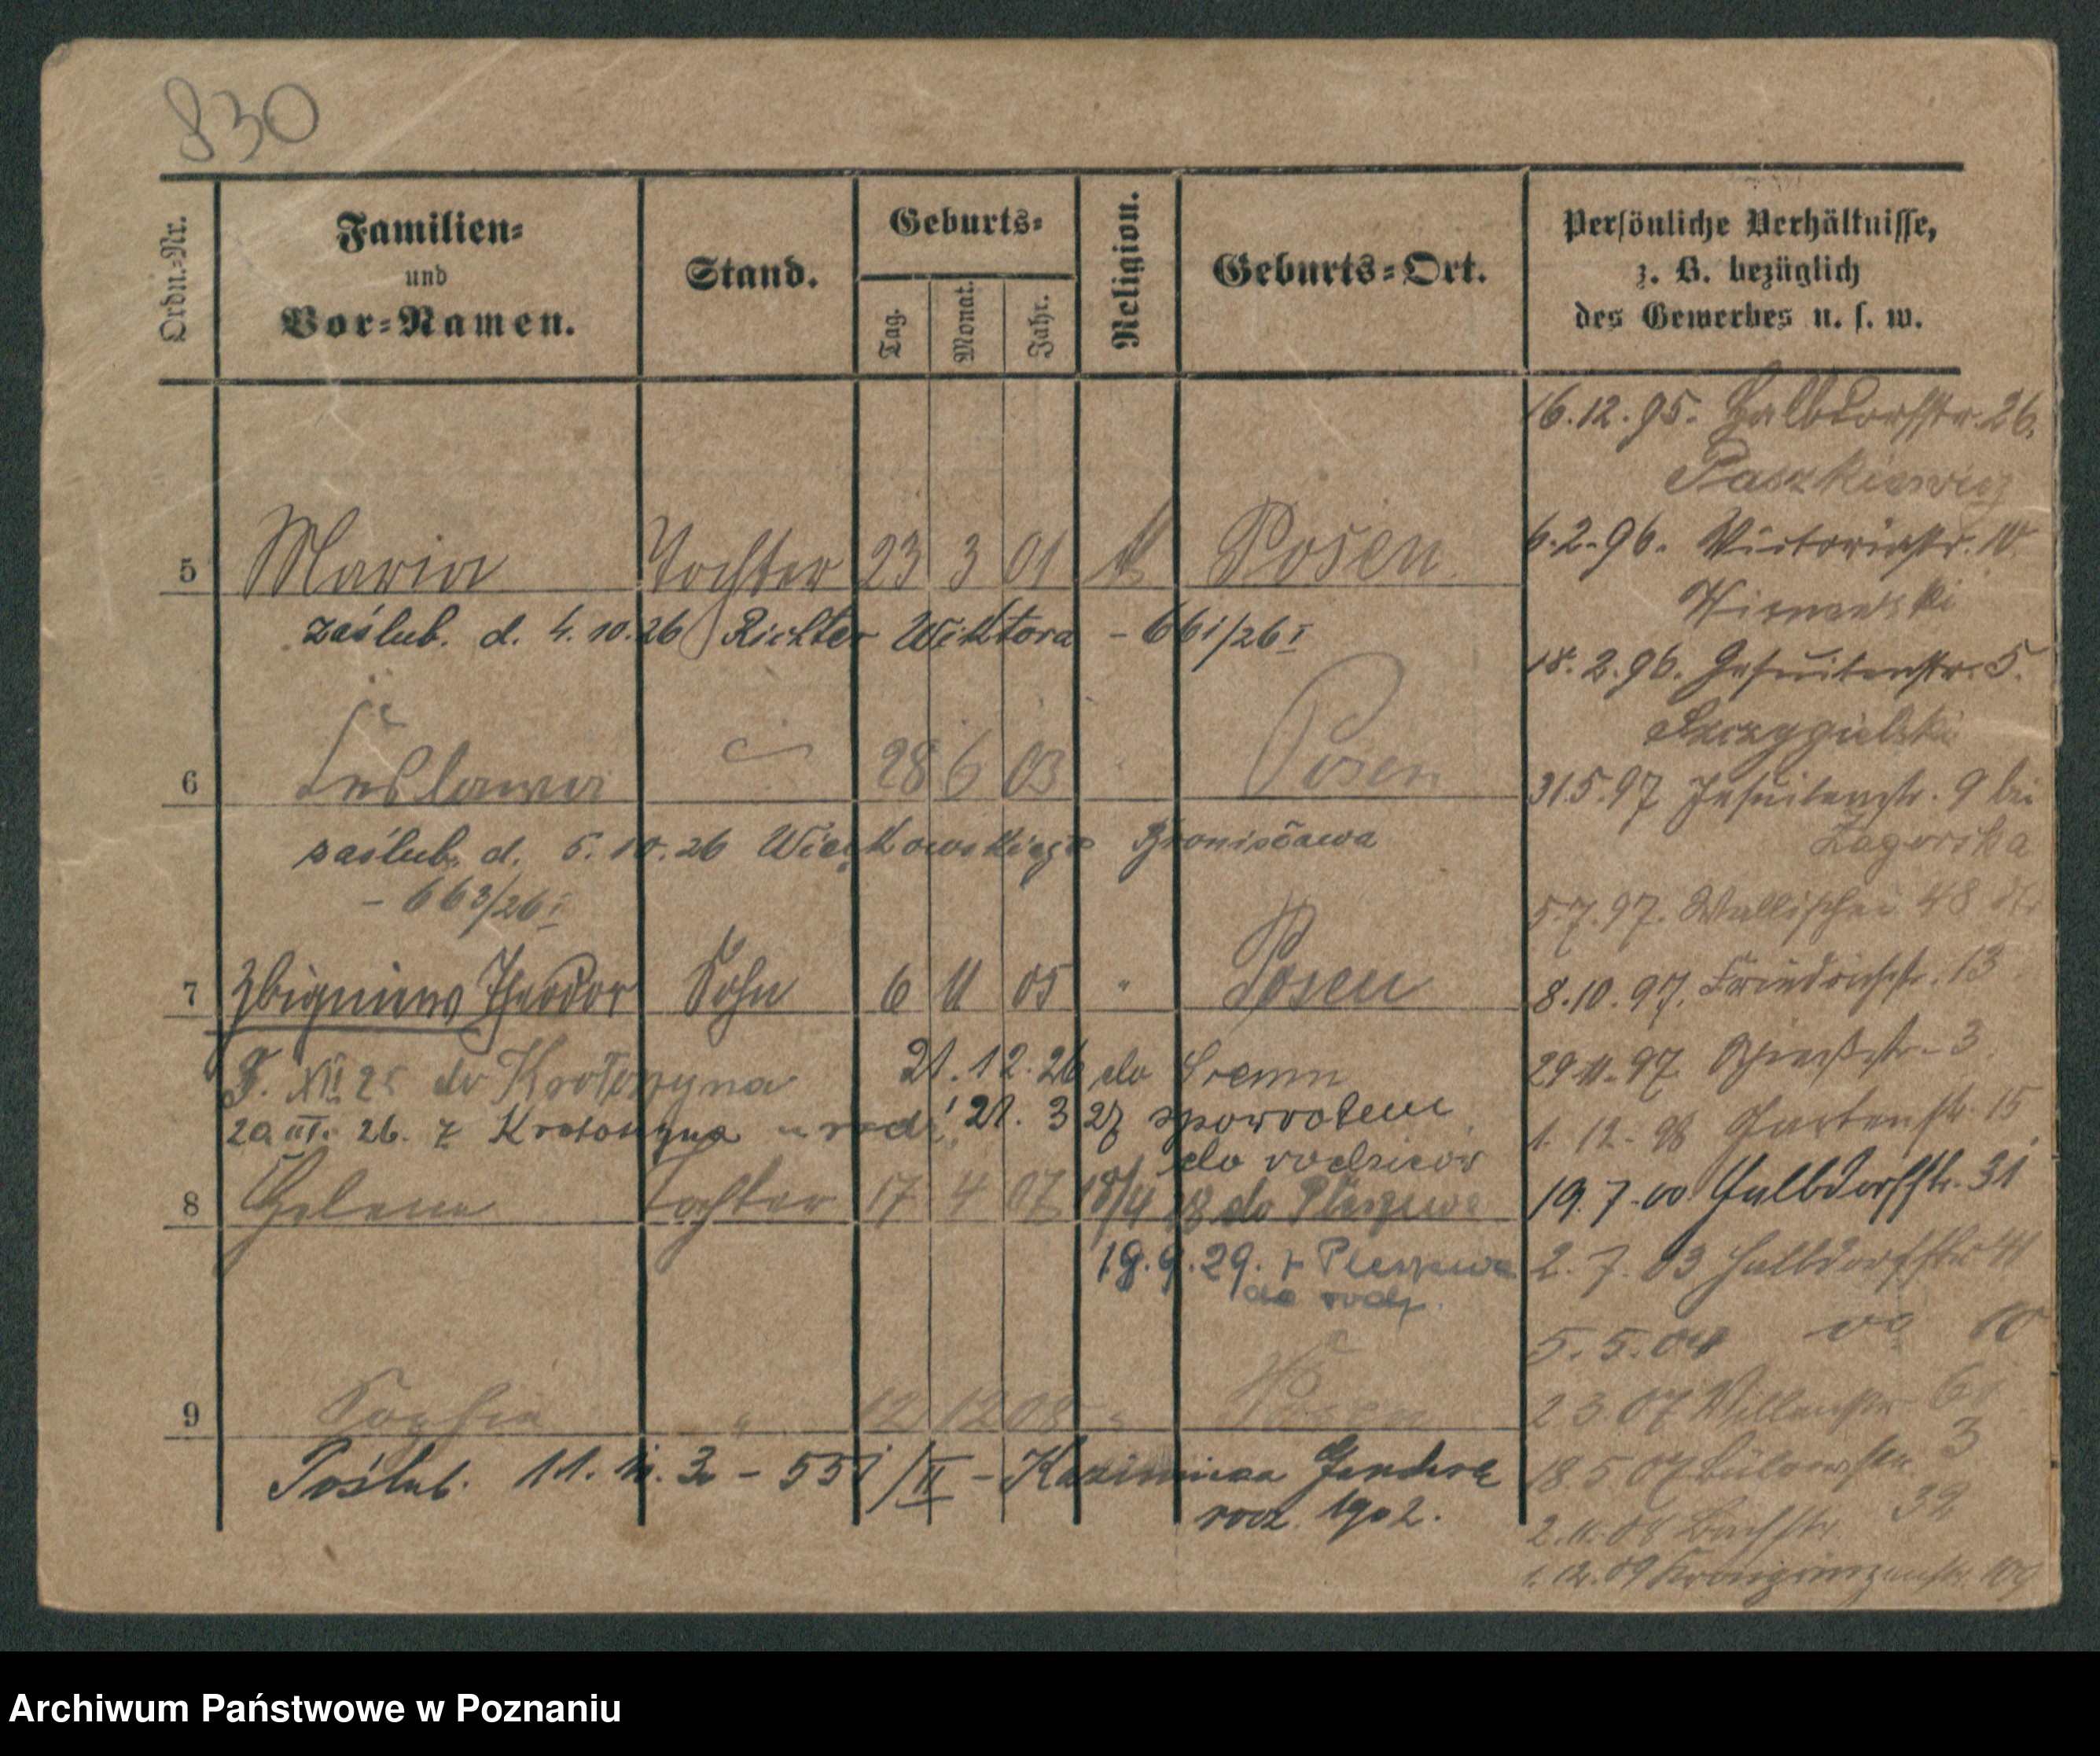 830
Ordn.-Nr.
Familien-
und
Vor-Namen.
Stand.
Geburts-
Tag.
Monat.
Jahr.
Religion.
Geburts-Ort.
Persönliche Verhältnisse,
z. B. bezüglich
des Gewerbes u. s. w.
5 Maria Tochter 23 3 01 Posen
zaślub. d. 4.10.26 Richter Wiktora - 661/26 I
6 28 6 03 Posen
zaślub. d. 5.10.26 Bronisława
- 663/26 I
7 Zbigniew Theodor Sohn 6 11 05 " Posen
XII 25 do Krotoszyna 21.12.26 do Śremu
20 III. 26. z Krotoszyna 21. 3 27 spowrotem
do rodziców
8 Helene Tochter 17 4 07 do Pleszewa
19.9.29. z Pleszewa
do rodz.
9 Sophia " 12 12 08 " Posen
Poślub. - 551/II - Kazimierza
rodz. 1902.
16.12.95. Halbdorfstr. 26.
Paszkiewicz
6.2.96. Victoriastr. 10
18.2.96. Jesuitenstr. 5.
Szczygielski
31.5.97 Jesuitenstr. 9 bei
Zagorska
5.7.97. Wallischei 48
8.10.97. Friedrichstr. 13
29.11.97 3
1. 12. 98 Gartenstr. 15
19.7.00 Halbdorfstr. 31
2. 7. 03 Halbdorfstr.
5.5.04 10
2 3.07
18.5 07 Bülowstr. 3
2.11.08 Bachstr. 32
1.12.09 Kronprinzenstr. 109
Archiwum Państwowe w Poznaniu